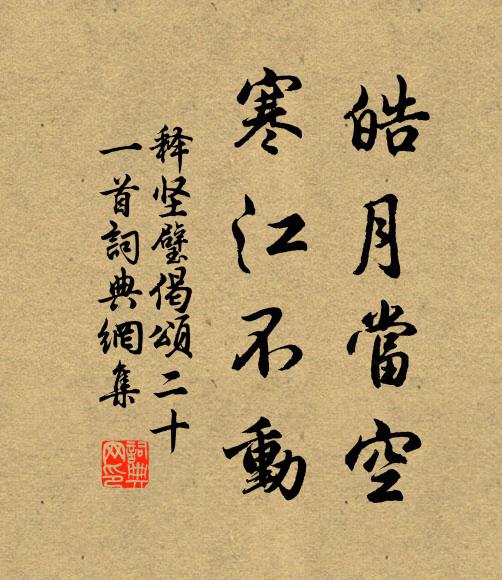 皓月當空
寒江不動
释坚璧偈頌二十
一首詞典網集
詞典网印